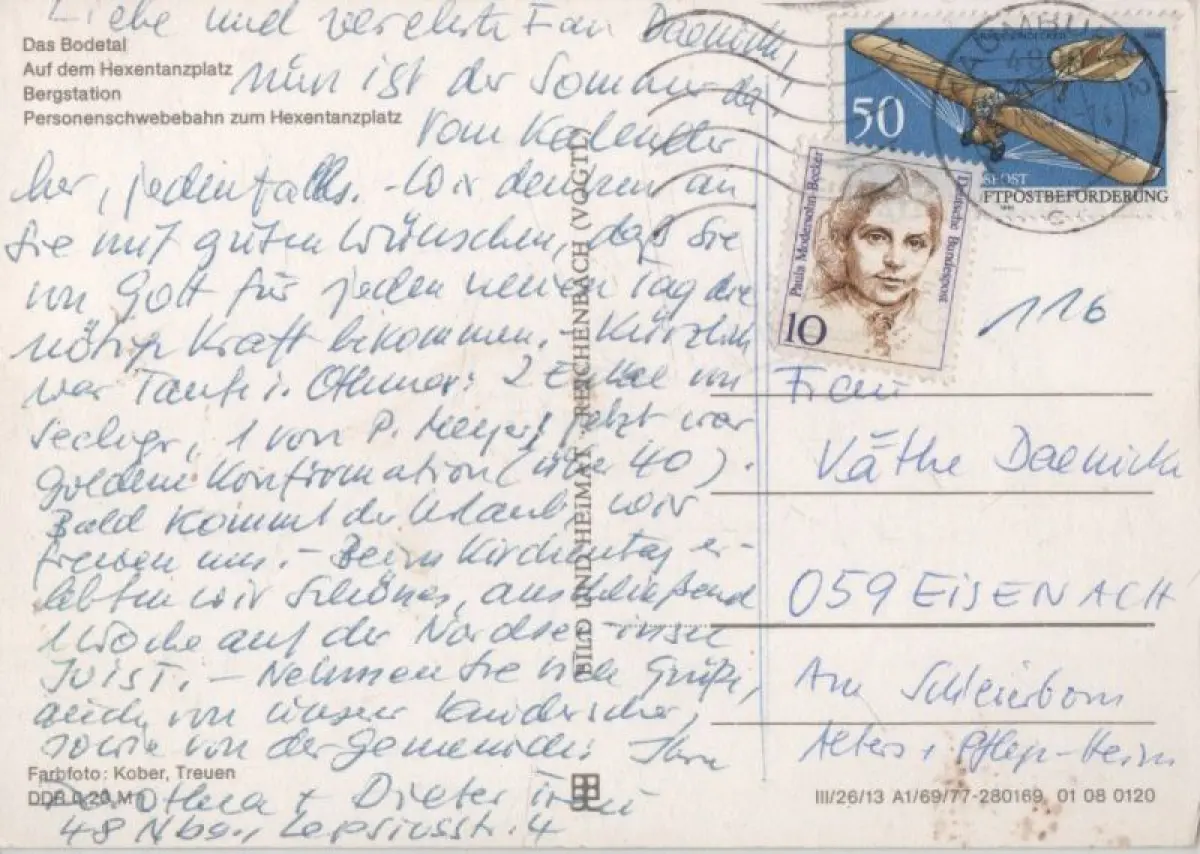 Liebe und verehrte Frau Daenicke,
Das Bodetal
Auf dem Hexentanzplatz
Bergstation
Personenschwebebahn zum Hexentanzplatz
nun ist der Sommer da,
vom Kalender
her, jedenfalls. - Wir denken an
Sie mit guten Wünschen, daß Sie
von Gott für jeden neuen Tag die
nötige Kraft bekommen. Kürzlich
war Taufe i. Othmar: 2 Enkel von
1 von P. Meyer, jetzt war
goldene Konfirmation (über 40).
Bald kommt der Urlaub, wir
freuen uns. - Beim Kirchentag er-
lebten wir Schönes, anschließend
1 Woche auf der Nordsee-insel
JUIST. - Nehmen Sie viele Grüße,
auch von unser
sowie von der Gemeinde: Ihre
Farbfoto: Kober, Treuen
DDR 0,20 M
Dorothea + Dieter
48 Nbg., Lepsiusstr. 4
BILD UND HEIMAT REICHENBACH (VOGTL)
50
FTPOSTBEFÖRDERUNG
Paula Modersohn-Becker
Deutsche Bundespost
10
116
Frau
Käthe Daenicke
059 EISENACH
Am Schleierborn
Alters + Pflege-Heim
III/26/13 A1/69/77-280169 01 08 0120